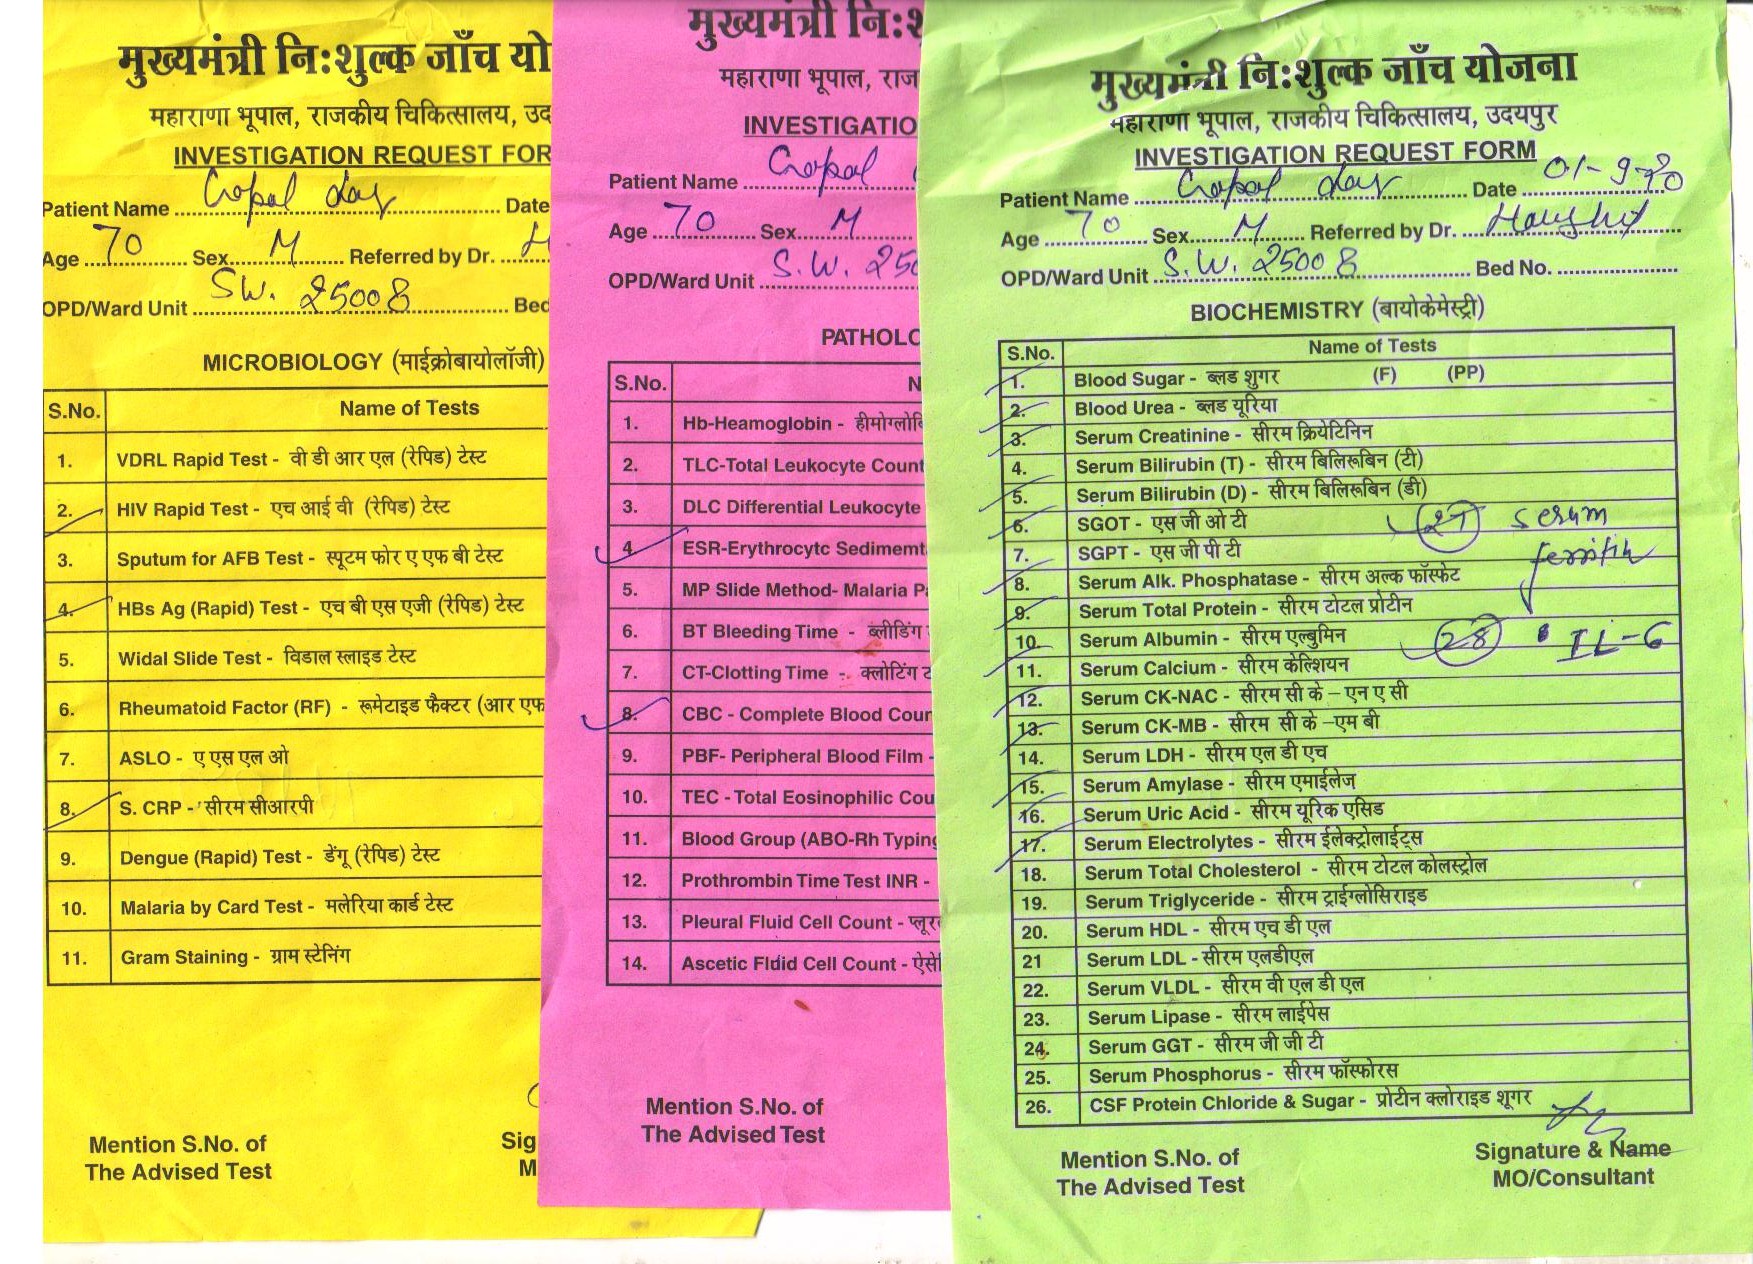 मुख्यमंत्री नि:शुल्क जाँच यो
महाराणा भूपाल, राजकीय चिकित्सालय, उद
INVESTIGATION REQUEST FOR
Patient Name Gopal das Date
Age 70 Sex M Referred by Dr. H
OPD/Ward Unit SW. 25008 Bed
MICROBIOLOGY (माईक्रोबायोलॉजी)
S.No. Name of Tests
1. VDRL Rapid Test - वी डी आर एल (रेपिड) टेस्ट
2. HIV Rapid Test - एच आई वी (रेपिड) टेस्ट
3. Sputum for AFB Test - स्पूटम फोर ए एफ बी टेस्ट
4. HBs Ag (Rapid) Test - एच बी एस एजी (रेपिड) टेस्ट
5. Widal Slide Test - विडाल स्लाइड टेस्ट
6. Rheumatoid Factor (RF) - रूमेटाइड फैक्टर (आर एफ
7. ASLO - ए एस एल ओ
8. S. CRP - सीरम सीआरपी
9. Dengue (Rapid) Test - डेंगू (रेपिड) टेस्ट
10. Malaria by Card Test - मलेरिया कार्ड टेस्ट
11. Gram Staining - ग्राम स्टेनिंग
Mention S.No. of
The Advised Test
Sig
M
मुख्यमंत्री नि:श
महाराणा भूपाल, राज
INVESTIGATIO
Patient Name Gopal
Age 70 Sex M
OPD/Ward Unit S.W. 250
PATHOLO
S.No. N
1. Hb-Heamoglobin - हीमोग्लोबि
2. TLC-Total Leukocyte Count
3. DLC Differential Leukocyte
4. ESR-Erythrocytc Sedimemt
5. MP Slide Method- Malaria P
6. BT Bleeding Time - ब्लीडिंग
7. CT-Clotting Time - क्लोटिंग
8. CBC - Complete Blood Coun
9. PBF- Peripheral Blood Film -
10. TEC - Total Eosinophilic Cou
11. Blood Group (ABO-Rh Typing
12. Prothrombin Time Test INR -
13. Pleural Fluid Cell Count - प्लूर
14. Ascetic Fldid Cell Count - ऐसे
Mention S.No. of
The Advised Test
मुख्यमंत्री नि:शुल्क जाँच योजना
महाराणा भूपाल, राजकीय चिकित्सालय, उदयपुर
INVESTIGATION REQUEST FORM
Patient Name Gopal das Date 01-9-20
Age 70 Sex M Referred by Dr.
OPD/Ward Unit S.W. 25008 Bed No.
BIOCHEMISTRY (बायोकेमेस्ट्री)
S.No. Name of Tests
1. Blood Sugar - ब्लड शुगर (F) (PP)
2. Blood Urea - ब्लड यूरिया
3. Serum Creatinine - सीरम क्रियेटिनिन
4. Serum Bilirubin (T) - सीरम बिलिरूबिन (टी)
5. Serum Bilirubin (D) - सीरम बिलिरूबिन (डी)
6. SGOT - एस जी ओ टी 27 serum
7. SGPT - एस जी पी टी ferritin
8. Serum Alk. Phosphatase - सीरम अल्क फॉस्फेट
9. Serum Total Protein - सीरम टोटल प्रोटीन
10. Serum Albumin - सीरम एल्बुमिन 28 IL-6
11. Serum Calcium - सीरम केल्शियन
12. Serum CK-NAC - सीरम सी के - एन ए सी
13. Serum CK-MB - सीरम सी के -एम बी
14. Serum LDH - सीरम एल डी एच
15. Serum Amylase - सीरम एमाईलेज
16. Serum Uric Acid - सीरम यूरिक एसिड
17. Serum Electrolytes - सीरम ईलेक्ट्रोलाईट्स
18. Serum Total Cholesterol - सीरम टोटल कोलस्ट्रोल
19. Serum Triglyceride - सीरम ट्राईग्लोसिराइड
20. Serum HDL - सीरम एच डी एल
21 Serum LDL - सीरम एलडीएल
22. Serum VLDL - सीरम वी एल डी एल
23. Serum Lipase - सीरम लाईपेस
24. Serum GGT - सीरम जी जी टी
25. Serum Phosphorus - सीरम फॉस्फोरस
26. CSF Protein Chloride & Sugar - प्रोटीन क्लोराइड शूगर
Mention S.No. of
The Advised Test
Signature & Name
MO/Consultant